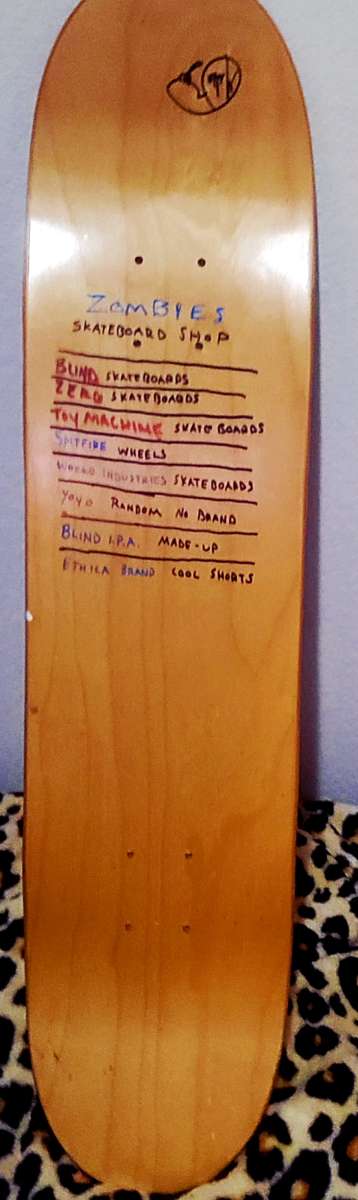 ZOMBIES
SKATEBOARD SHOP
BLIND SKATEBOARDS
ZERO SKATEBOARDS
TOY MACHINE SKATE BOARDS
SPITFIRE WHEELS
WORLD INDUSTRIES SKATEBOARDS
YOYO RANDOM NO BRAND
BLIND I.P.A. MADE-UP
ETHICA BRAND COOL SHORTS